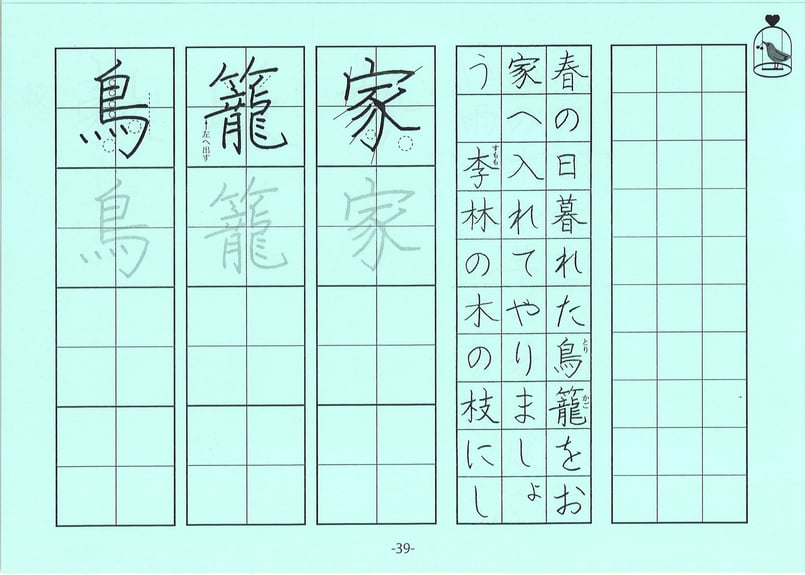 春の日暮れた鳥籠をお
とり
かご
家へ入れてやりましょ
う 李林の木の枝にし
すもも
家
籠
左へ出す
鳥
家
籠
鳥
-39-